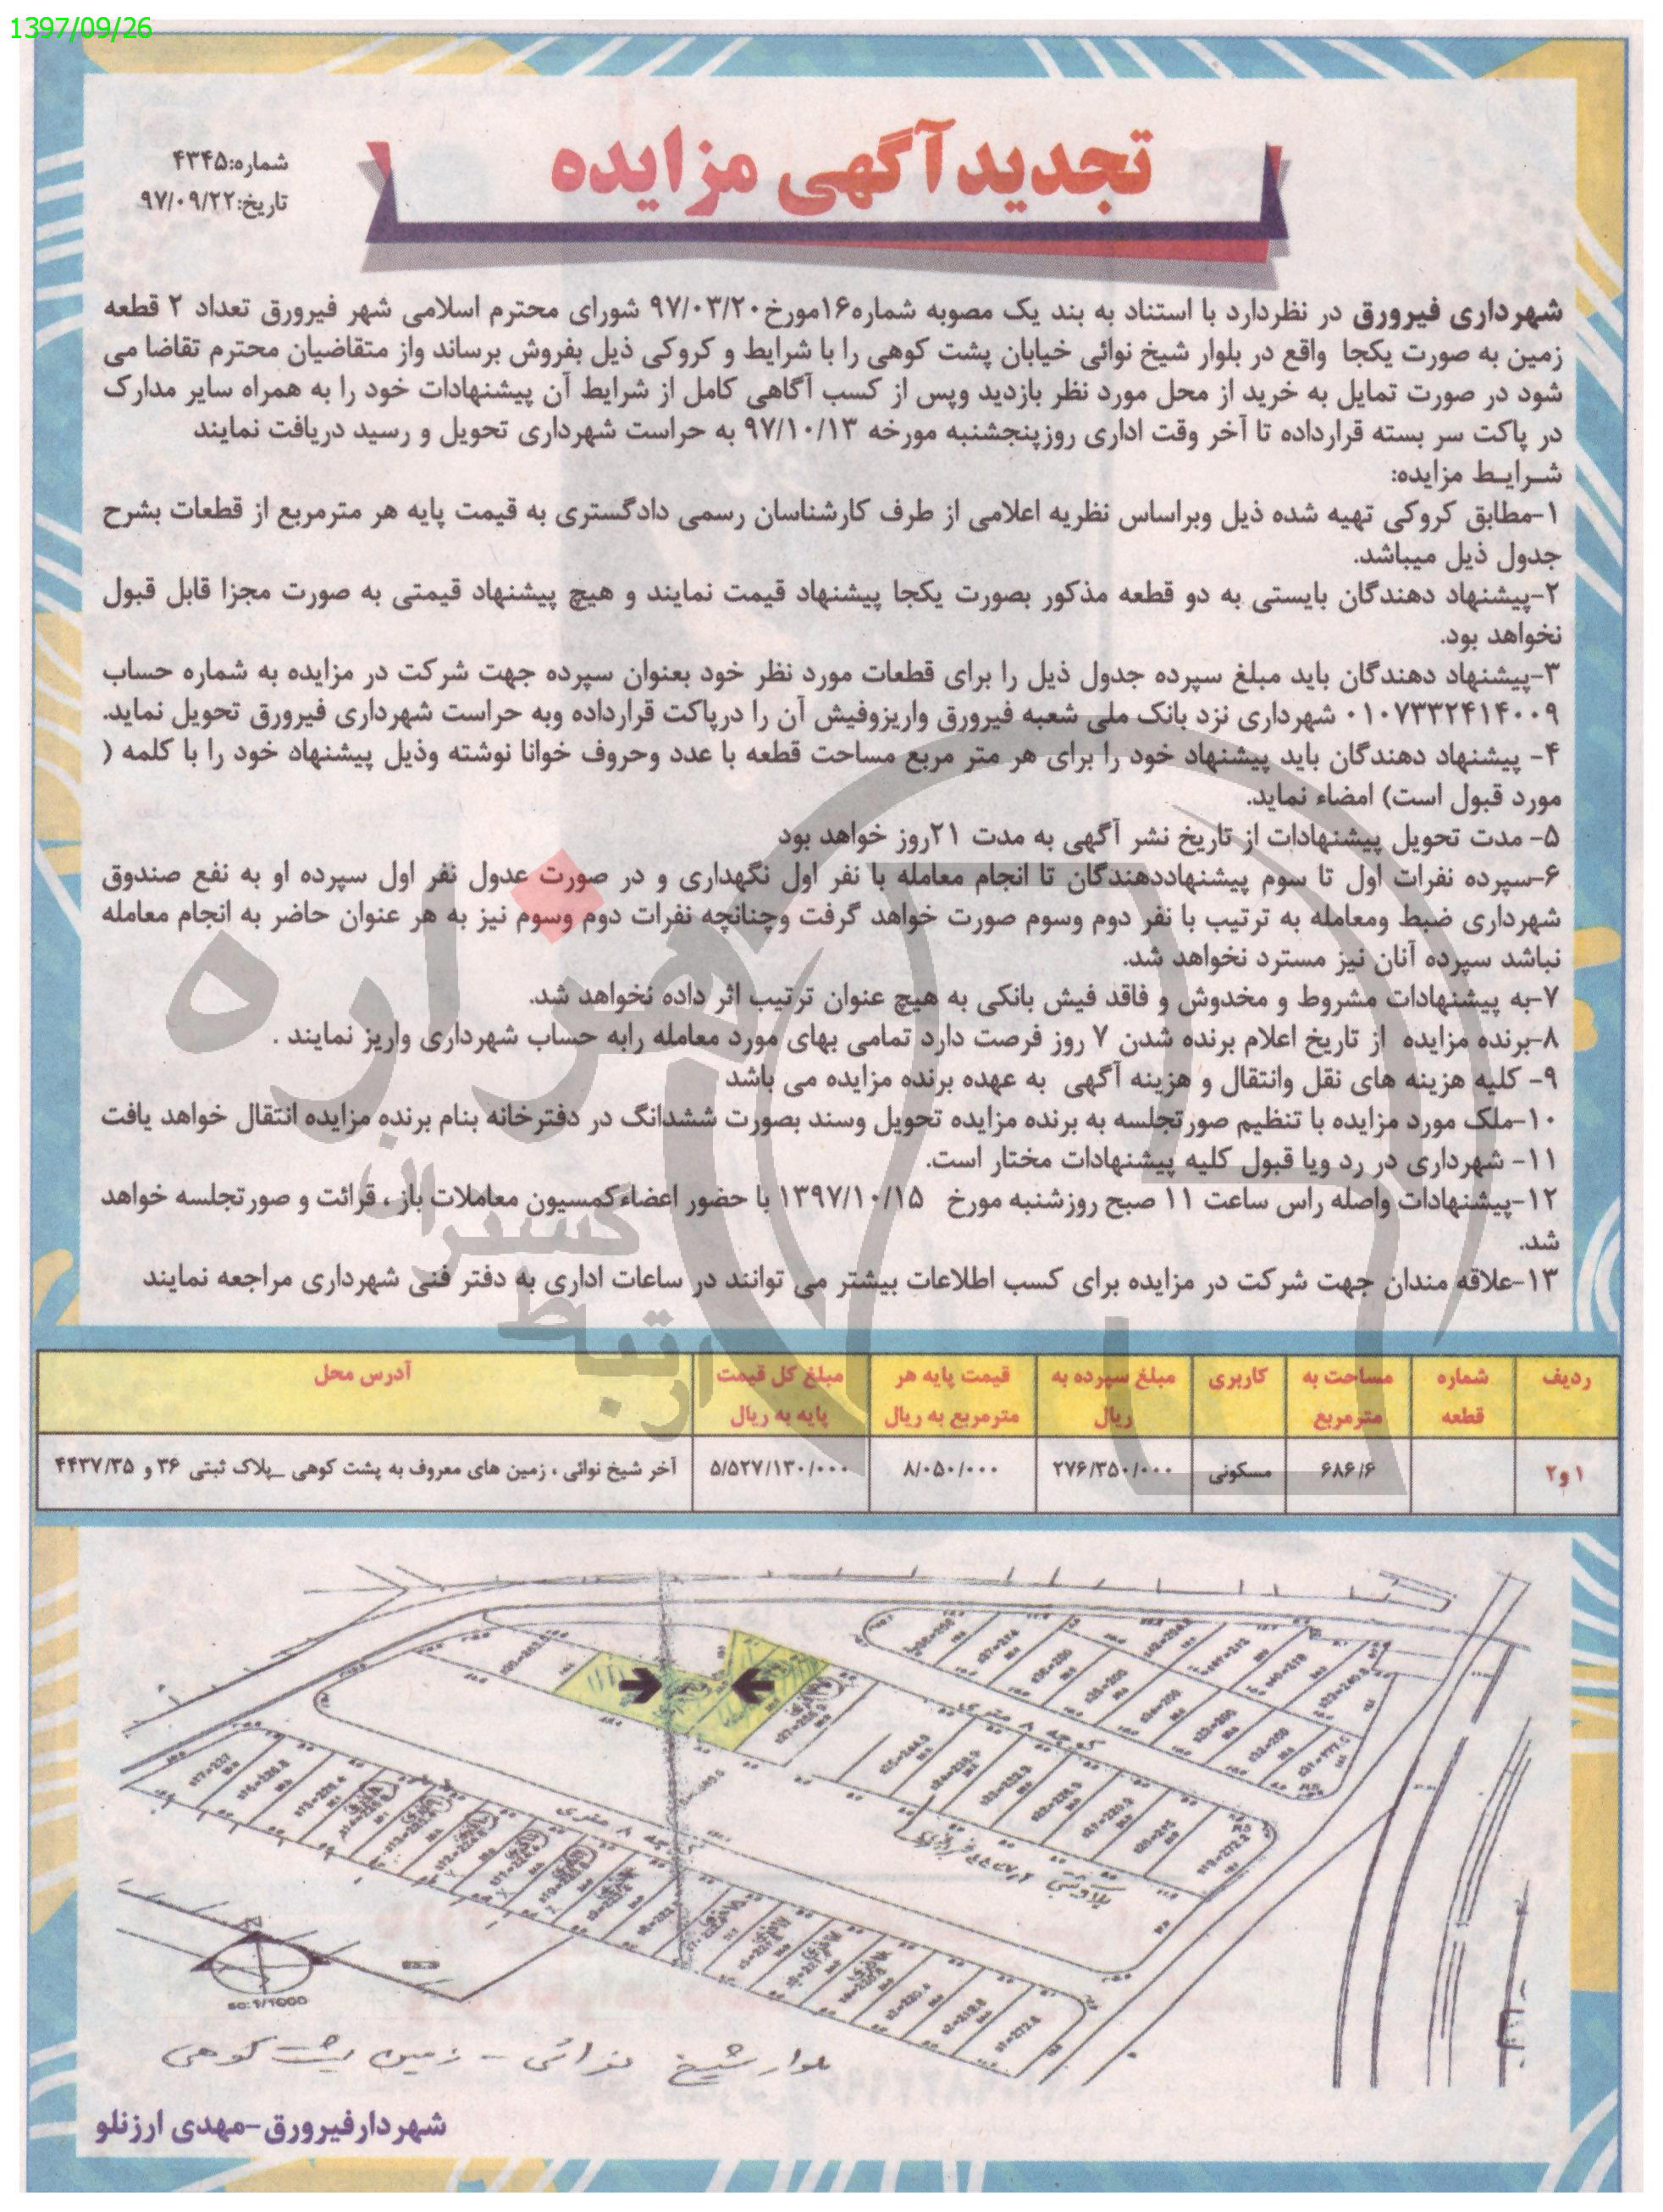 1397/09/26
تجدید آگهی مزایده
شماره:۴۳۴۵
تاریخ:۹۷/۰۹/۲۲
شهرداری فیرورق در نظردارد با استناد به بند یک مصوبه شماره۱۶مورخ۹۷/۰۳/۲۰ شورای محترم اسلامی شهر فیرورق تعداد ۲ قطعه
زمین به صورت یکجا واقع در بلوار شیخ نوائی خیابان پشت کوهی را با شرایط و کروکی ذیل بفروش برساند واز متقاضیان محترم تقاضا می
شود در صورت تمایل به خرید از محل مورد نظر بازدید وپس از کسب آگاهی کامل از شرایط آن پیشنهادات خود را به همراه سایر مدارک
در پاکت سر بسته قرارداده تا آخر وقت اداری روزپنجشنبه مورخه ۹۷/۱۰/۱۳ به حراست شهرداری تحویل و رسید دریافت نمایند
شـرایـط مزایده:
۱-مطابق کروکی تهیه شده ذیل وبراساس نظریه اعلامی از طرف کارشناسان رسمی دادگستری به قیمت پایه هر مترمربع از قطعات بشرح
جدول ذیل میباشد.
۲-پیشنهاد دهندگان بایستی به دو قطعه مذکور بصورت یکجا پیشنهاد قیمت نمایند و هیچ پیشنهاد قیمتی به صورت مجزا قابل قبول
نخواهد بود.
۳-پیشنهاد دهندگان باید مبلغ سپرده جدول ذیل را برای قطعات مورد نظر خود بعنوان سپرده جهت شرکت در مزایده به شماره حساب
۰۱۰۷۳۳۲۴۱۴۰۰۹ شهرداری نزد بانک ملی شعبه فیرورق واریزوفیش آن را درپاکت قرارداده وبه حراست شهرداری فیرورق تحویل نماید.
۴- پیشنهاد دهندگان باید پیشنهاد خود را برای هر متر مربع مساحت قطعه با عدد وحروف خوانا نوشته وذیل پیشنهاد خود را با کلمه (
مورد قبول است) امضاء نماید.
۵- مدت تحویل پیشنهادات از تاریخ نشر آگهی به مدت ۲۱روز خواهد بود
۶-سپرده نفرات اول تا سوم پیشنهاددهندگان تا انجام معامله با نفر اول نگهداری و در صورت عدول نفر اول سپرده او به نفع صندوق
شهرداری ضبط ومعامله به ترتیب با نفر دوم وسوم صورت خواهد گرفت وچنانچه نفرات دوم وسوم نیز به هر عنوان حاضر به انجام معامله
نباشد سپرده آنان نیز مسترد نخواهد شد.
۷-به پیشنهادات مشروط و مخدوش و فاقد فیش بانکی به هیچ عنوان ترتیب اثر داده نخواهد شد.
۸-برنده مزایده از تاریخ اعلام برنده شدن ۷ روز فرصت دارد تمامی بهای مورد معامله رابه حساب شهرداری واریز نمایند .
۹- کلیه هزینه های نقل وانتقال و هزینه آگهی به عهده برنده مزایده می باشد
۱۰-ملک مورد مزایده با تنظیم صورتجلسه به برنده مزایده تحویل وسند بصورت ششدانگ در دفترخانه بنام برنده مزایده انتقال خواهد یافت
۱۱- شهرداری در رد ویا قبول کلیه پیشنهادات مختار است.
۱۲-پیشنهادات واصله راس ساعت ۱۱ صبح روزشنبه مورخ ۱۳۹۷/۱۰/۱۵ با حضور اعضاءکمسیون معاملات باز ، قرائت و صورتجلسه خواهد
شد.
۱۳-علاقه مندان جهت شرکت در مزایده برای کسب اطلاعات بیشتر می توانند در ساعات اداری به دفتر فنی شهرداری مراجعه نمایند
هزاره
گستران
ارتباط
ردیف شماره قطعه مساحت به مترمربع کاربری مبلغ سپرده به ریال قیمت پایه هر مترمربع به ریال مبلغ کل قیمت پایه به ریال آدرس محل
۱ و۲ ۶۸۶/۶ مسکونی ۲۷۶/۳۵۰/۰۰۰ ۸/۰۵۰/۰۰۰ ۵/۵۲۷/۱۳۰/۰۰۰ آخر شیخ نوائی ، زمین های معروف به پشت کوهی _پلاک ثبتی ۳۶ و ۴۴۳۷/۳۵
کوچه ۸ متری
کوچه ۸ متری
sc:1/1000
بلوار شیخ نوائی - زمین پشت کوهی
شهردارفیرورق-مهدی ارزنلو